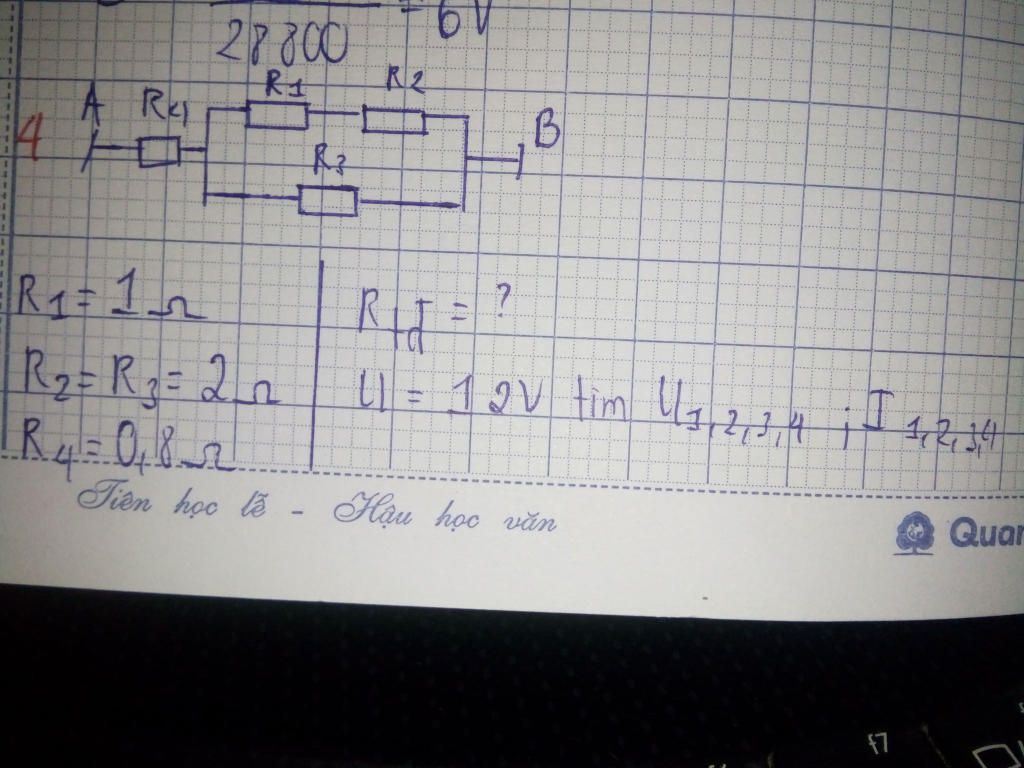 28800 = 6V
4
A R4 R1 R2 B
R3
R1 = 1 Ω
R2 = R3 = 2 Ω
R4 = 0,8 Ω
Rtđ = ?
U = 12V tìm U1,2,3,4 ; I1,2,3,4
Tiên học lễ - Hậu học văn
Quan
f7